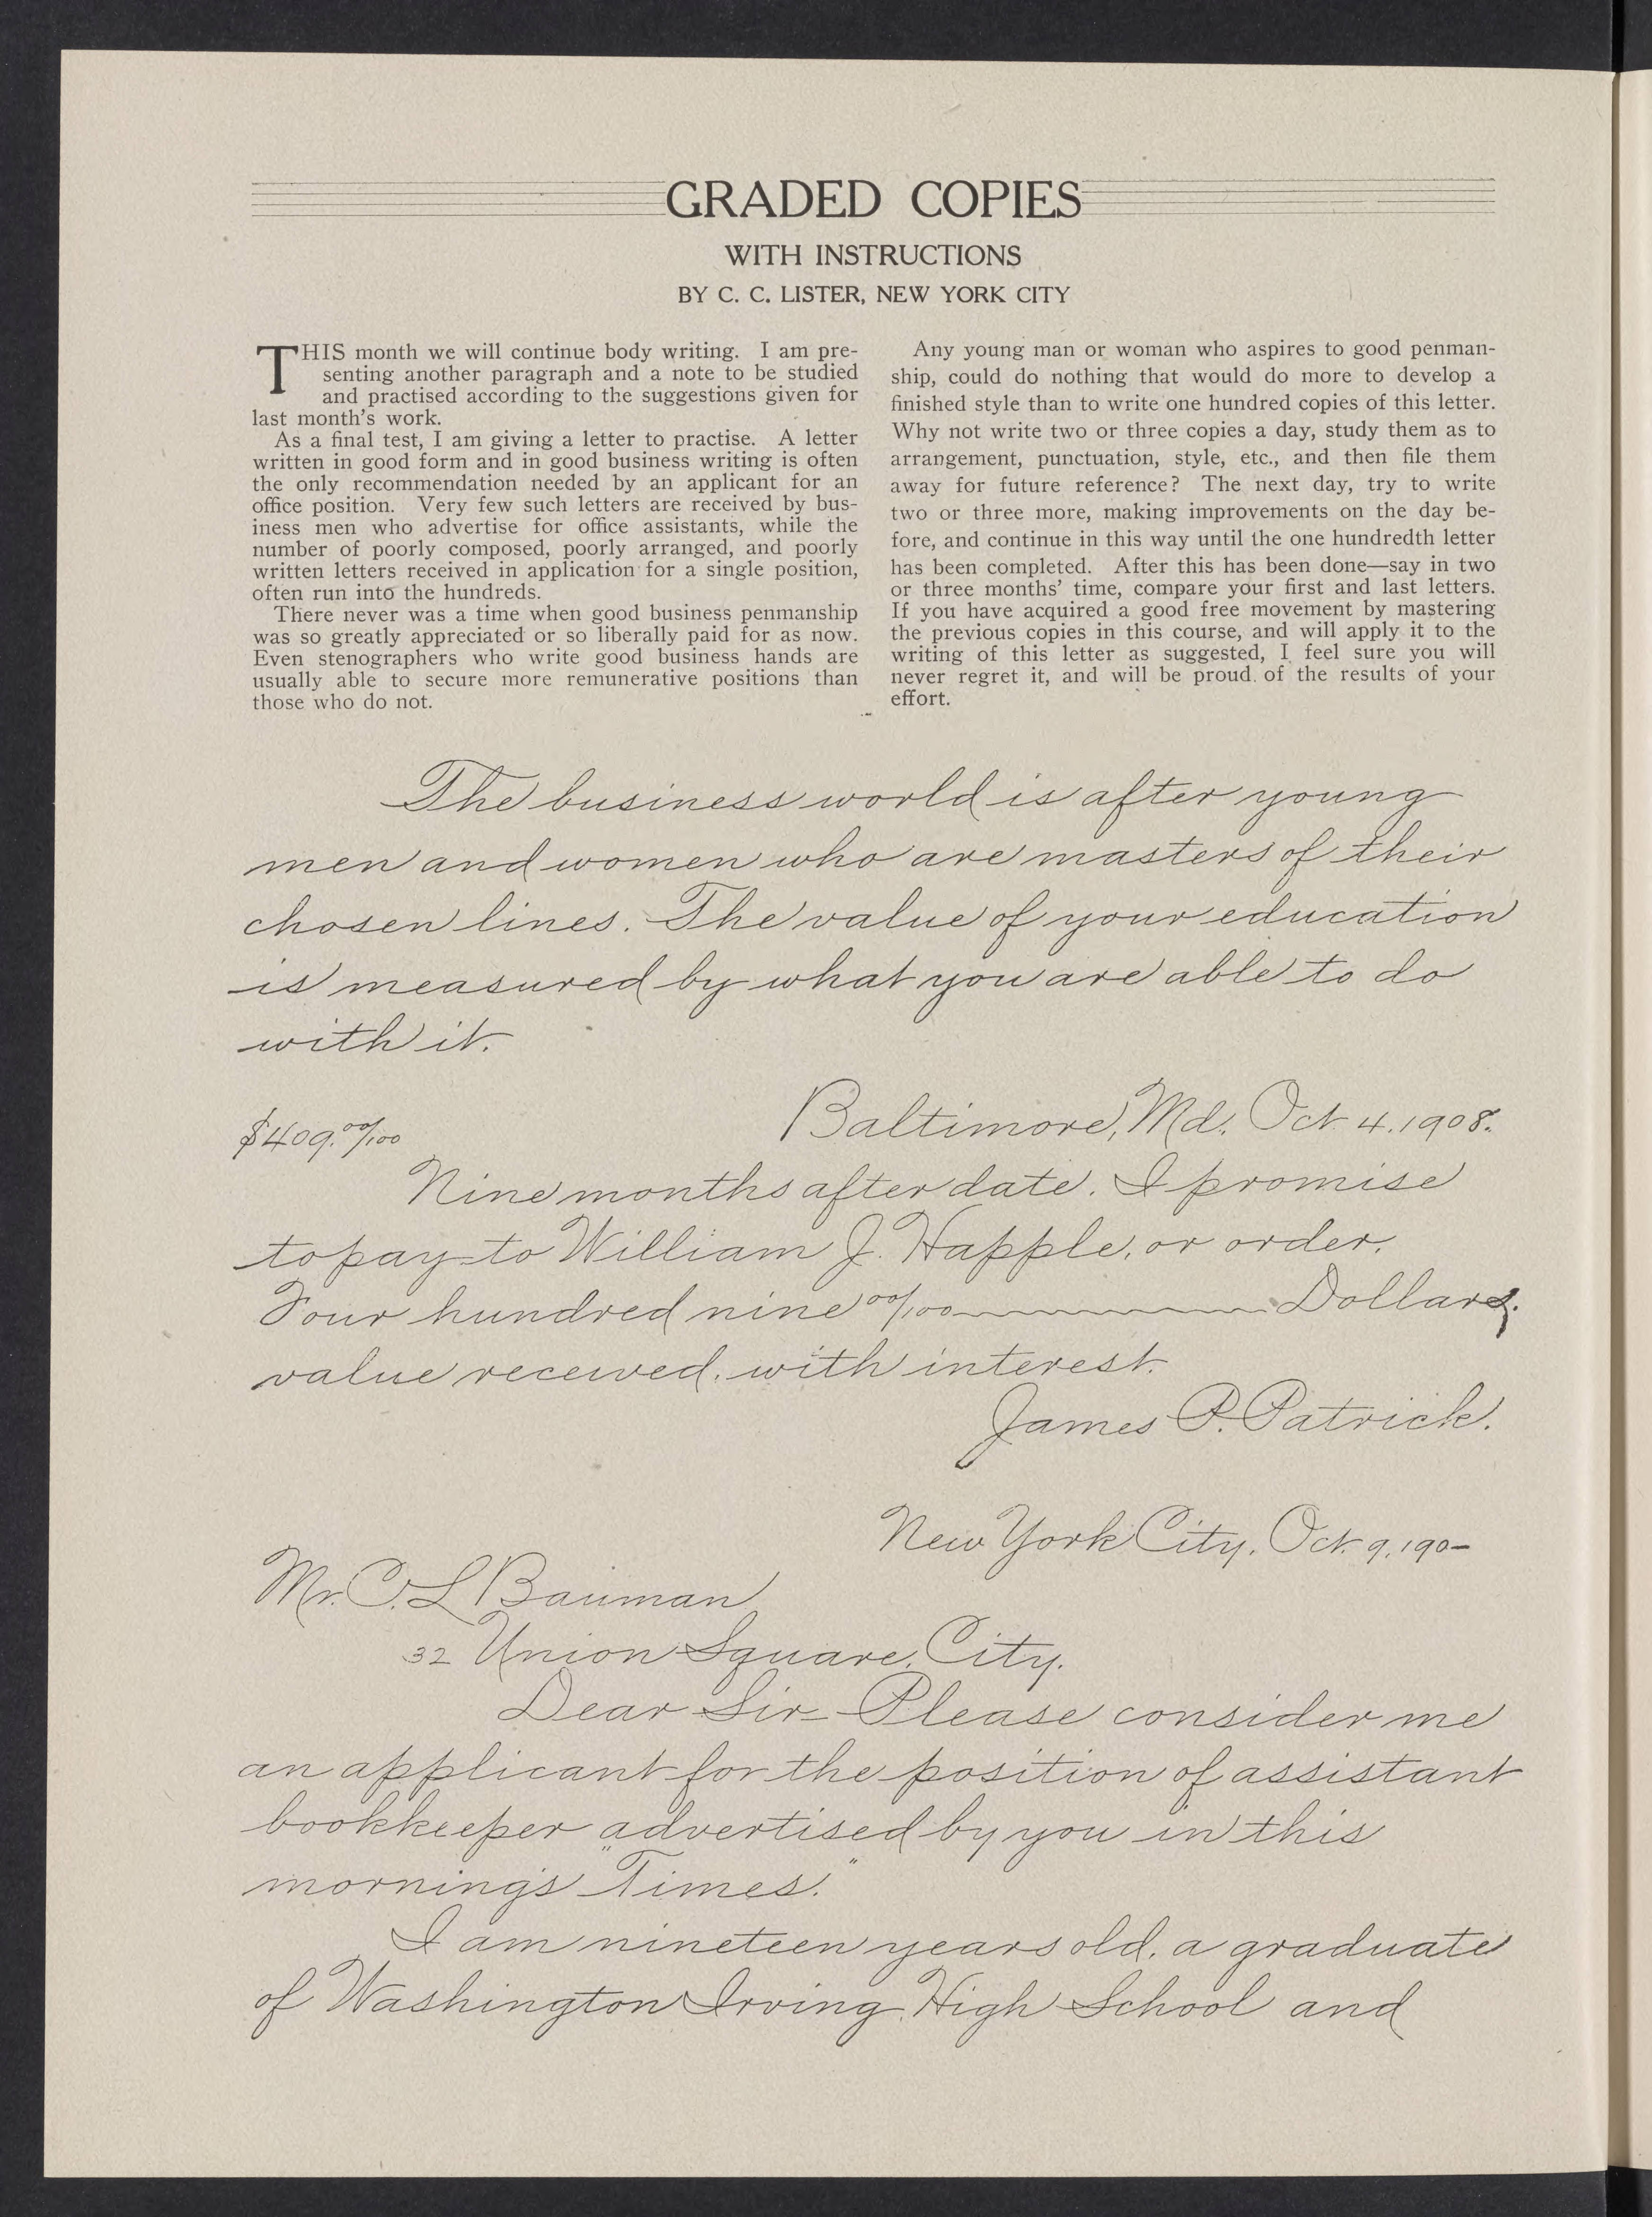 GRADED COPIES
WITH INSTRUCTIONS
BY C. C. LISTER, NEW YORK CITY
THIS month we will continue body writing. I am pre-
senting another paragraph and a note to be studied
and practised according to the suggestions given for
last month's work.
As a final test, I am giving a letter to practise. A letter
written in good form and in good business writing is often
the only recommendation needed by an applicant for an
office position. Very few such letters are received by bus-
iness men who advertise for office assistants, while the
number of poorly composed, poorly arranged, and poorly
written letters received in application for a single position,
often run into the hundreds.
There never was a time when good business penmanship
was so greatly appreciated or so liberally paid for as now.
Even stenographers who write good business hands are
usually able to secure more remunerative positions than
those who do not.
Any young man or woman who aspires to good penman-
ship, could do nothing that would do more to develop a
finished style than to write one hundred copies of this letter.
Why not write two or three copies a day, study them as to
arrangement, punctuation, style, etc., and then file them
away for future reference? The next day, try to write
two or three more, making improvements on the day be-
fore, and continue in this way until the one hundredth letter
has been completed. After this has been done—say in two
or three months' time, compare your first and last letters.
If you have acquired a good free movement by mastering
the previous copies in this course, and will apply it to the
writing of this letter as suggested, I feel sure you will
never regret it, and will be proud of the results of your
effort.
The business world is after young
men and women who are masters of their
chosen lines. The value of your education
is measured by what you are able to do
with it.
$409.00/100 Baltimore, Md. Oct. 4, 1908.
Nine months after date, I promise
to pay to William J. Happle, or order,
Four hundred nine 00/100 Dollars,
value received, with interest.
James P. Patrick.
New York City, Oct. 9, 190-
Mr. C. L. Bauman
32 Union Square, City.
Dear Sir - Please consider me
an applicant for the position of assistant
bookkeeper advertised by you in this
morning's "Times."
I am nineteen years old, a graduate
of Washington Irving High School and